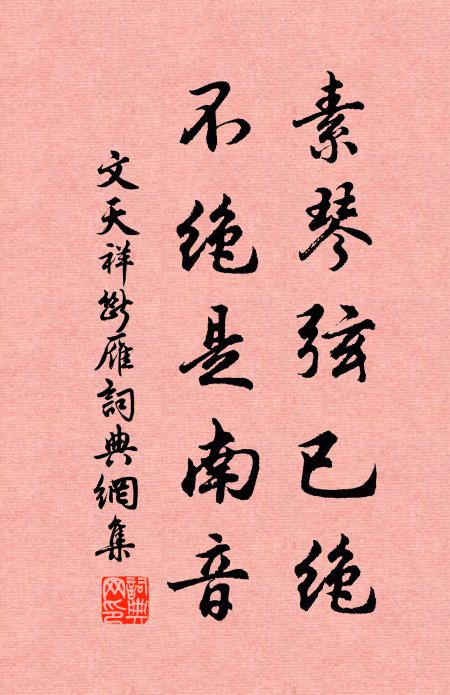 素琴弦已绝
不绝是南音
文天祥断雁詞典網集
詞典網印